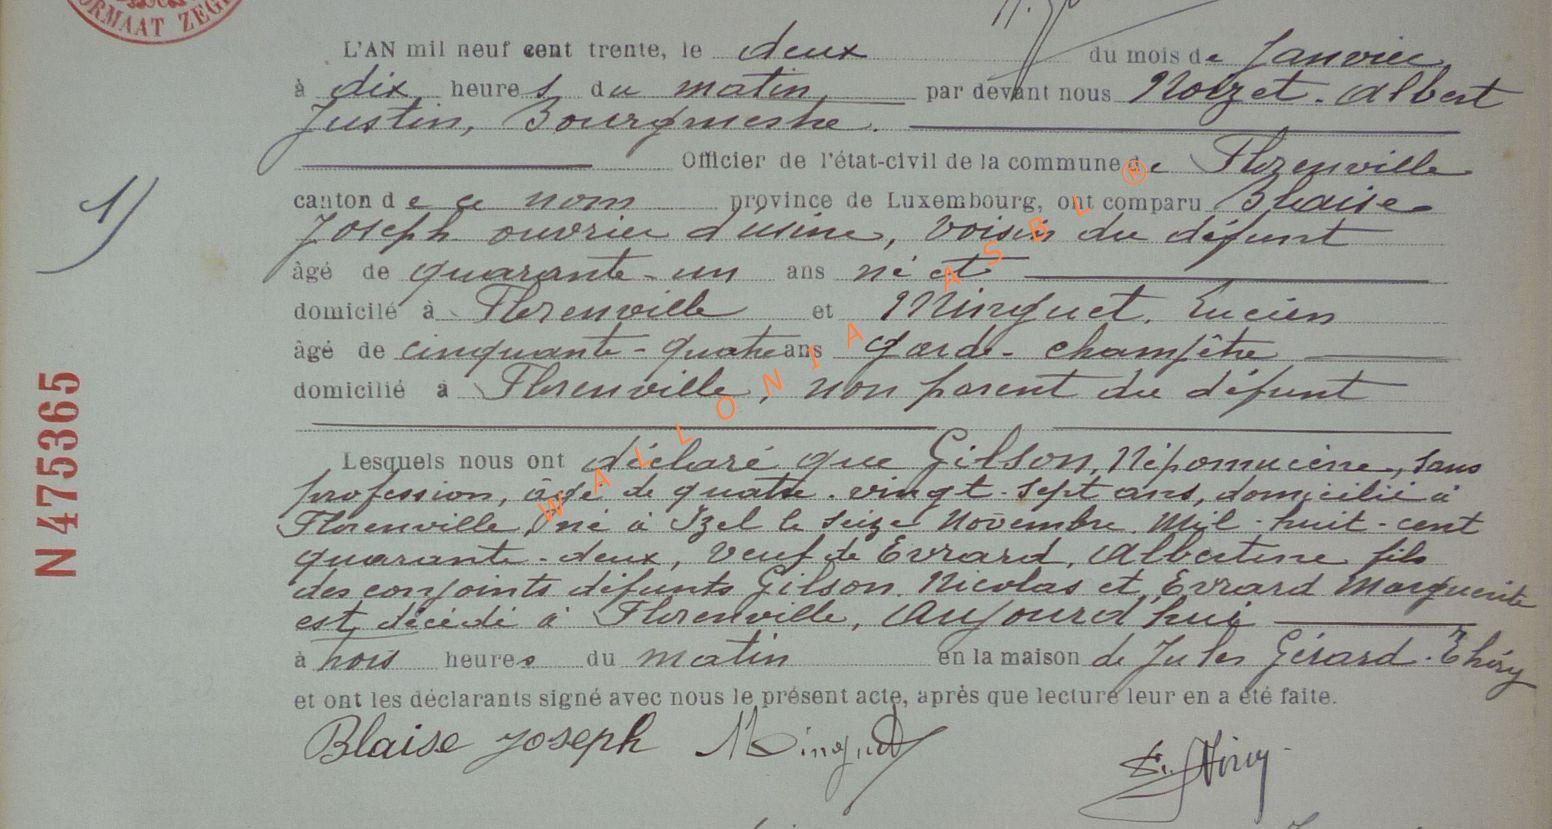 ORMAAT ZEG
L'AN mil neuf cent trente, le deux du mois de Janvier
à dix heures du matin par devant nous Noizet. Albert
Justin, Bourgmestre.
Officier de l'état-civil de la commune de Florenville
canton de ce nom province de Luxembourg, ont comparu Blaise
Joseph ouvrier d'usine, voisin du défunt
âgé de quarante-un ans né et
domicilé à Florenville et Minguet, Lucien
âgé de cinquante-quatre ans garde-champêtre
domicilié à Florenville, non parent du défunt
Lesquels nous ont déclaré que Gilson, Népomucène, sans
profession, âgé de quatre-vingt-sept ans, domicilié à
Florenville, né à Izel le seize Novembre Mil-huit-cent
quarante-deux, veuf de Evrard, Albertine fils
des conjoints défunts Gilson Nicolas et Evrard Marguerite
est décédé à Florenville, aujourd'hui
à trois heures du matin en la maison de Jules Gérard-Théry
et ont les déclarants signé avec nous le présent acte, après que lecture leur en a été faite.
Blaise Joseph Minguet
1)
N 475365
WALLONIA ASBL ®